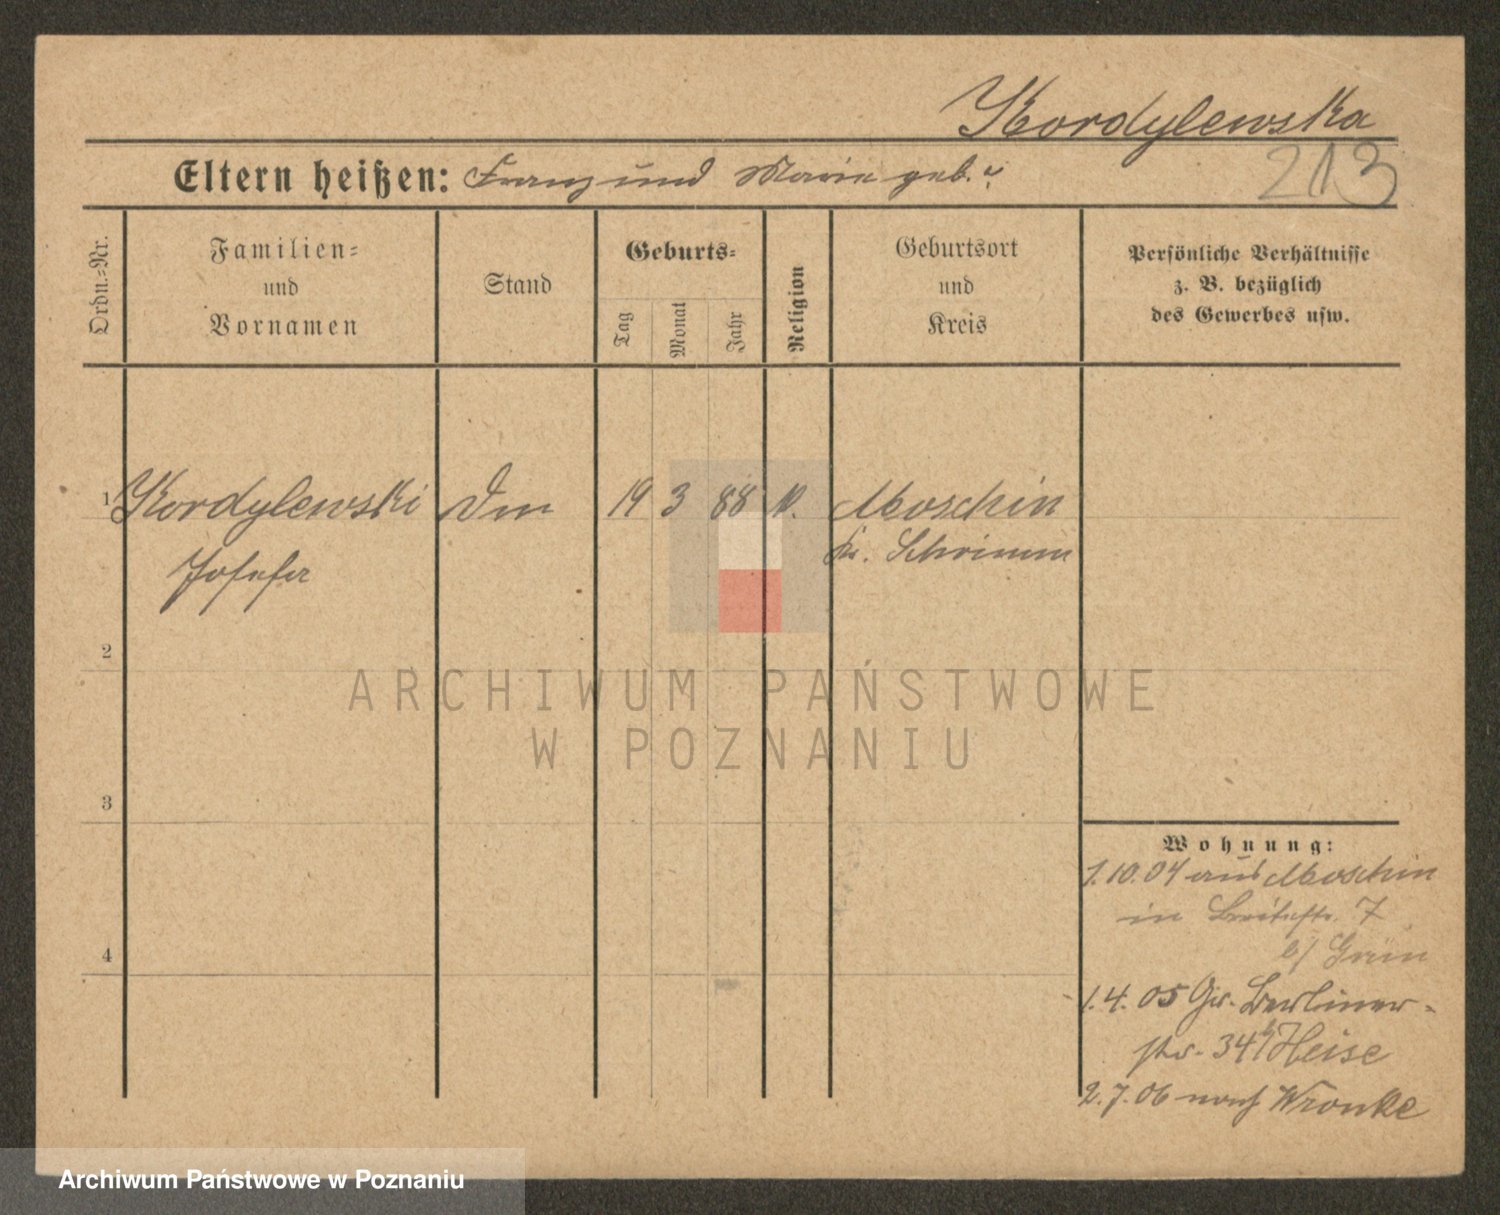 Kordylewska
213
Eltern heißen: Franz und Marie geb. ?
Ordn.=Nr.
Familien=
und
Vornamen
Stand
Geburts=
Tag
Monat
Jahr
Religion
Geburtsort
und
Kreis
Persönliche Verhältnisse
z. B. bezüglich
des Gewerbes usw.
1 Kordylewski 19 3 88 Moschin
Josefa Kr. Schrimm
2
ARCHIWUM PAŃSTWOWE
W POZNANIU
3
4
Wohnung:
1.10.04 aus Moschin
in Breitestr. 7
b/ Grün
1.4.05 Gr. Berliner-
str. 34 b/ Heise
2.7.06 nach Wronke
Archiwum Państwowe w Poznaniu